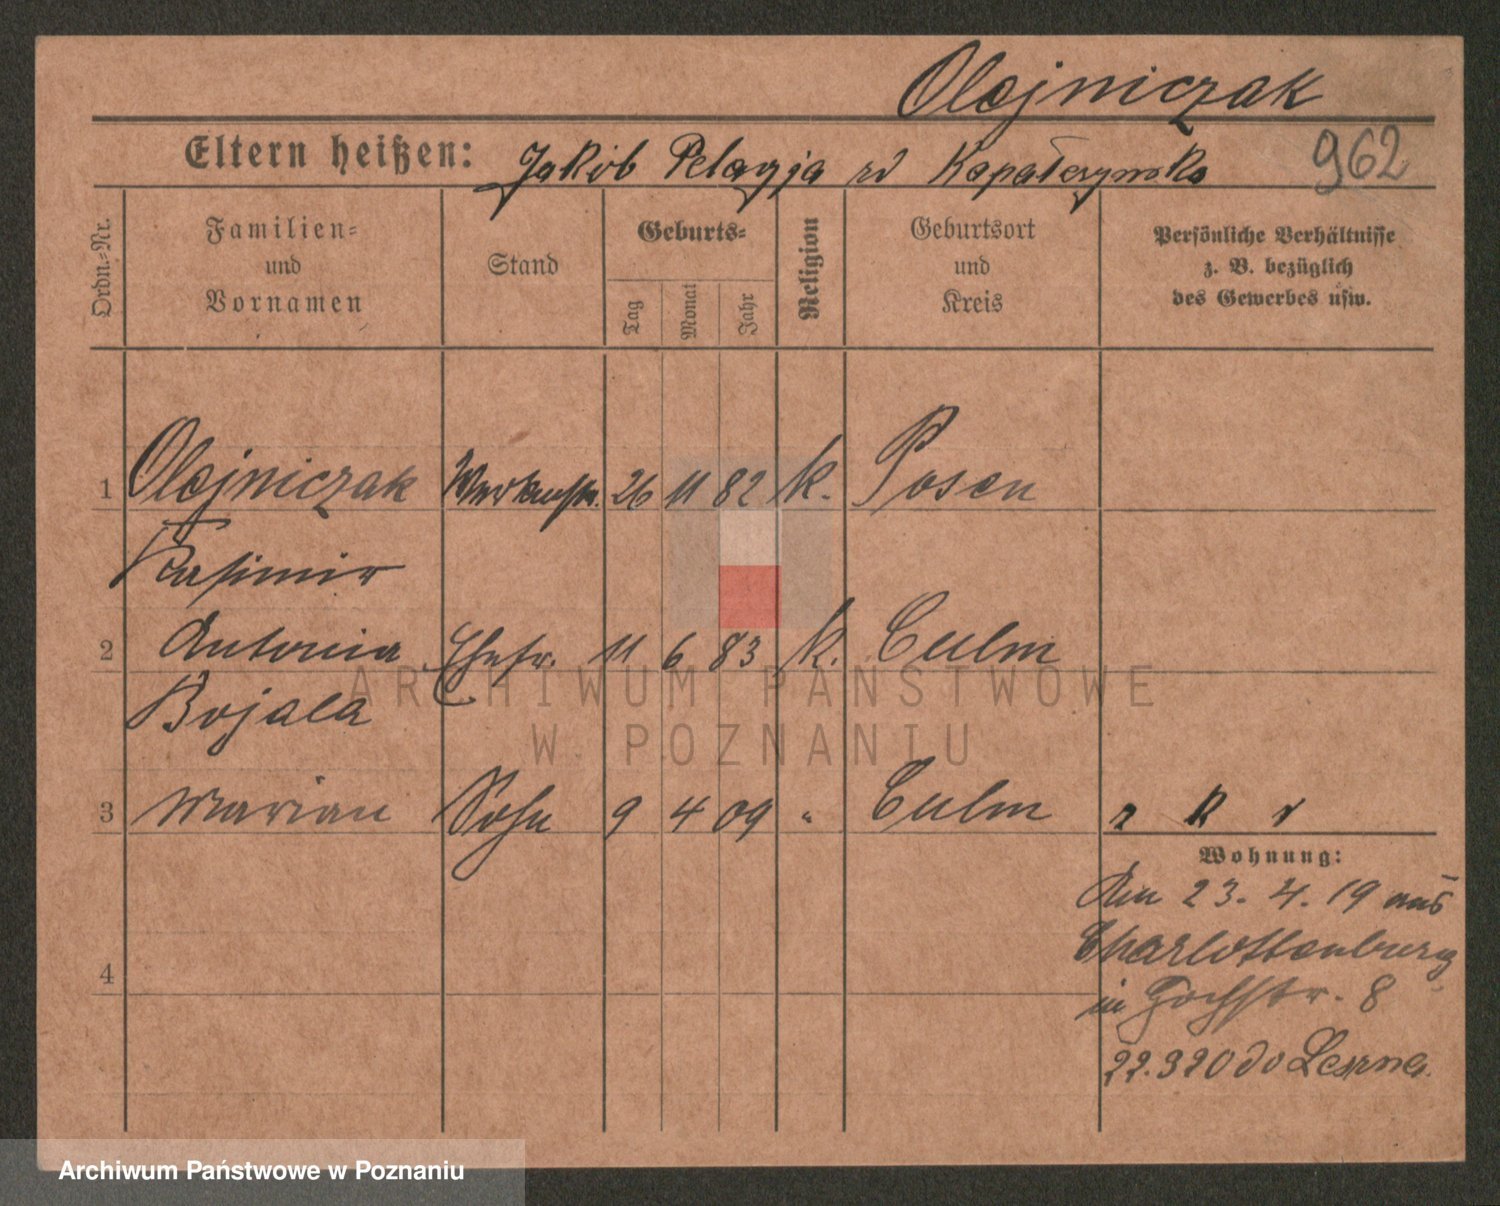 Olejniczak
Eltern heißen: Jakób Pelagja zd Kopałczynska
962
Ordn.-Nr.
Familien- und Vornamen
Stand
Geburts-
Tag
Monat
Jahr
Religion
Geburtsort und Kreis
Persönliche Verhältnisse z. B. bezüglich des Gewerbes usw.
1 Olejniczak 26 11 82 k. Posen
Kasimir
2 Antonia Ehefr. 11 6 83 k. Culm
Bojala
3 Marian Sohn 9 4 09 " Culm
r k r
Wohnung:
Am 23. 4. 19 aus
Charlottenburg
in Hochstr. 8
4
22.3 20 do Leszna.
ARCHIWUM PAŃSTWOWE
W POZNANIU
Archiwum Państwowe w Poznaniu